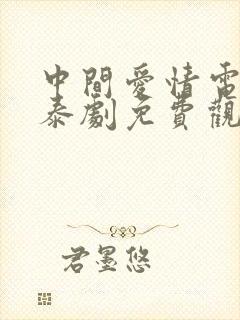 中間愛情電
泰劇免費觀
君墨悠